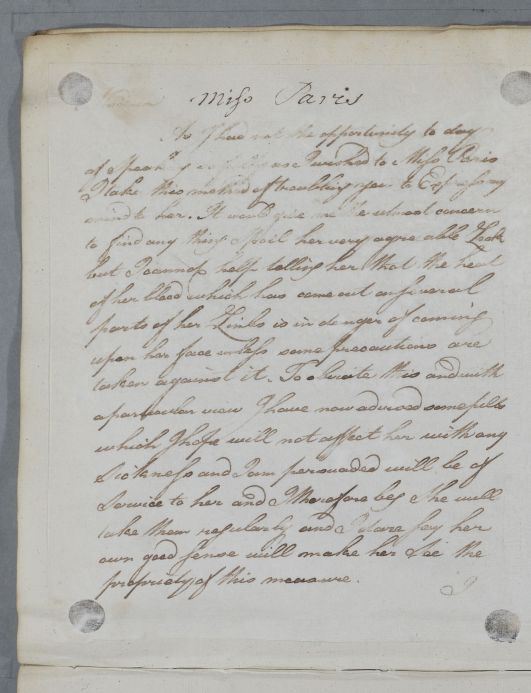 Miss Paris
As I had not the opportunity to day
of Speaking as I wished to Miss Paris
I take this method of troubling you to Express my
mind to her. It would give me the utmost concern
to find any thing Spoil her very agreable Look
but I cannot help telling her that the heat
of her blood which has come out on several
parts of her Limbs is in danger of coming
upon her face unless some precautions are
taken against it. To obviate this and with
a particular view I have now advised some pills
which I hope will not affect her with any
Sickness and I am persuaded will be of
Service to her and I therefore beg She will
take them regularly and I dare say her
own good sense will make her See the
propriety of this measure.